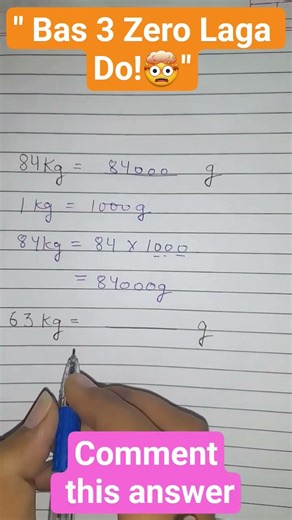 " Bas 3 Zero Laga
Do!🤯"
84Kg = 84000 g
1 kg = 1000g
84kg = 84 × 1000
= 84000g
63 kg = ________ g
Comment
this answer